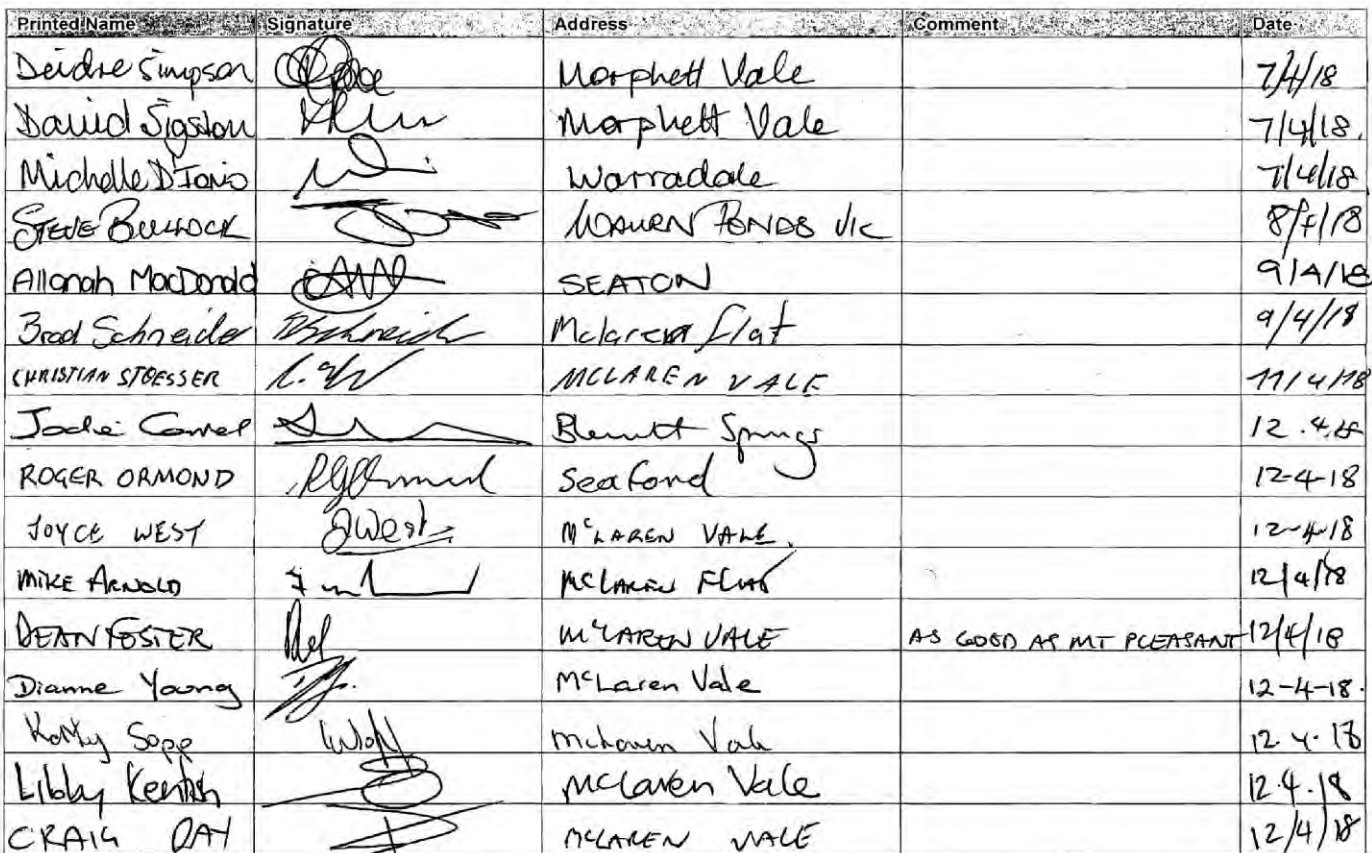 Printed Name Signature Address Comment Date
Deidre Simpson Morphett Vale 7/4/18
David Sigston Morphett Vale 7/4/18.
Michelle D'Ionio Warradale 7/4/18
STEVE BULLOCK WAURN PONDS Vic 8/4/18
Allanah MacDonald SEATON 9/4/18
Brad Schneider BSchneider Mclaren flat 9/4/18
CHRISTIAN STOESSER MCLAREN VALE 11/4/18
Jodie Blewitt Springs 12.4.18
ROGER ORMOND RGOrmond Seaford 12-4-18
JOYCE WEST JWest McLAREN VALE. 12-4-18
MIKE ARNOLD MCLAREN FLAT 12/4/18
DEAN FOSTER McLAREN VALE AS GOOD AS MT PLEASANT 12/4/18
Dianne Young McLaren Vale 12-4-18.
Sopp McLaren Vale 12.4.18
Libby Kentish McLaren Vale 12.4.18
CRAIG DAY MCLAREN VALE 12/4/18